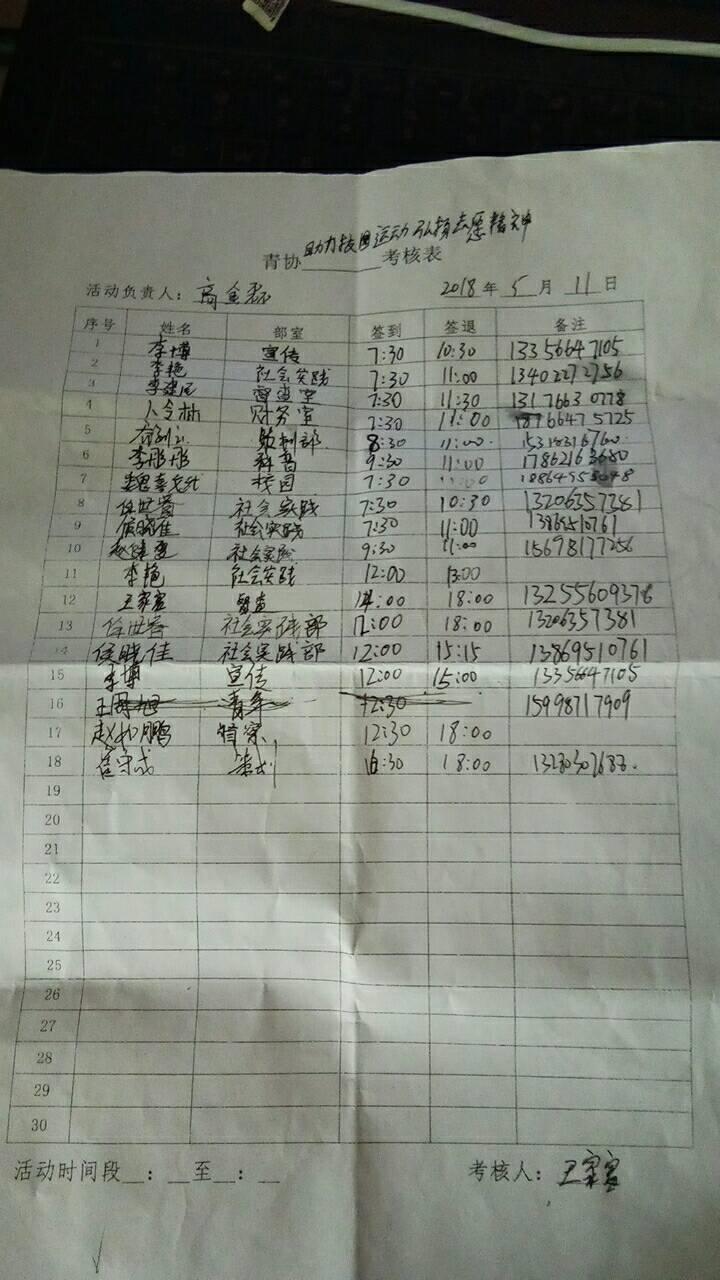 助力校园运动 弘扬志愿精神
青协 考核表
活动负责人: 2018 年 5 月 11 日
序号 姓名 部室 签到 签退 备注
1 李博 宣传 7:30 10:30 13356647105
2 李艳 社会实践 7:30 11:00 13402272756
3 督查室 7:30 11:30 13176630778
4 财务室 7:30 11:00
5 8:30 11:00
6 李彤彤 科普 9:30 11:00
7 校园 7:30
8 任世睿 社会实践 7:30 10:30 13206357381
9 侯晓佳 社会实践 7:30 11:00 13869510761
10 社会实践 9:30 11:00 15698177256
11 李艳 社会实践 12:00 13:00
12 王家宽 督查 14:00 18:00 13255609376
13 任世睿 社会实践部 12:00 18:00 13206357381
14 侯晓佳 社会实践部 12:00 15:15 13869510761
15 李博 宣传 12:00 15:00 13356647105
16 12:30 15998717909
17 12:30 18:00
18 崔守成 策划 16:30 18:00
19
20
21
22
23
24
25
26
27
28
29
30
活动时间段__:__至__:__ 考核人: 王家宽